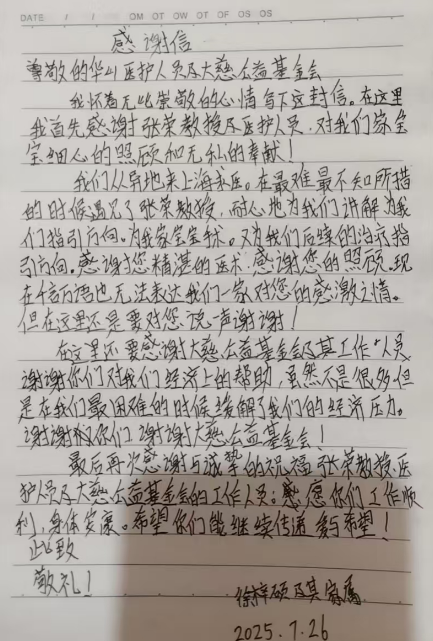 DATE / / MO TU WE TH FR SA SU
感谢信
尊敬的华山医护人员及大慈公益基金会
我怀着无比崇敬的心情写下这封信。在这里
我首先感谢张荣教授及医护人员,对我们家宝
宝细心的照顾和无私的奉献!
我们从异地来上海求医。在最难最不知所措
的时候遇见了张荣教授,耐心地为我们讲解为我
们指引方向。为我家宝宝手术。又为我们后续的治疗指
引方向。感谢您精湛的医术.感谢您的照顾.现
在千言万语也无法表达我们一家对您的感激之情。
但在这里还是要对您说一声谢谢!
在这里还要感谢大慈公益基金会及其工作人员
谢谢你们对我们经济上的帮助,虽然不是很多但
是在我们最困难的时候缓解了我们的经济压力。
谢谢你们.谢谢大慈公益基金会!
最后再次感谢与诚挚的祝福张荣教授.医
护人员及大慈公益基金会的工作人员:愿你们工作顺
利,身体安康。希望你们能继续传递爱与希望!
此致
敬礼!
徐梓硕及其家属
2025.7.26